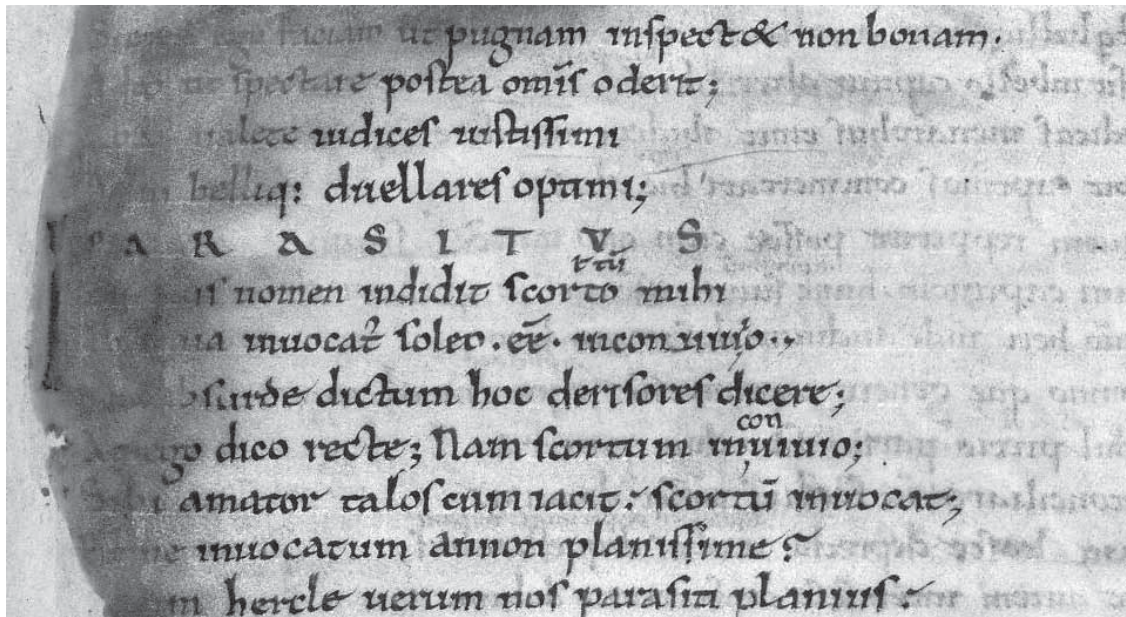 ego faciam ut pugnam inspect& non bonam.
ut spectare postea om̄is oderit;
ualete iudices iustissimi
belliq: duellares optimi;
P A R A S I T V S
nomen indidit scorto mihi
r tū
inuocat᷒ soleo . eē . inconuiuio .,
absurde dictum hoc derisores dicere;
ego dico recte; Nam scortum inuiuio;
con
amator talos cum iacit: scortū inuocat;
inuocatum annon planissime?
hercle uerum nos parasiti planius: